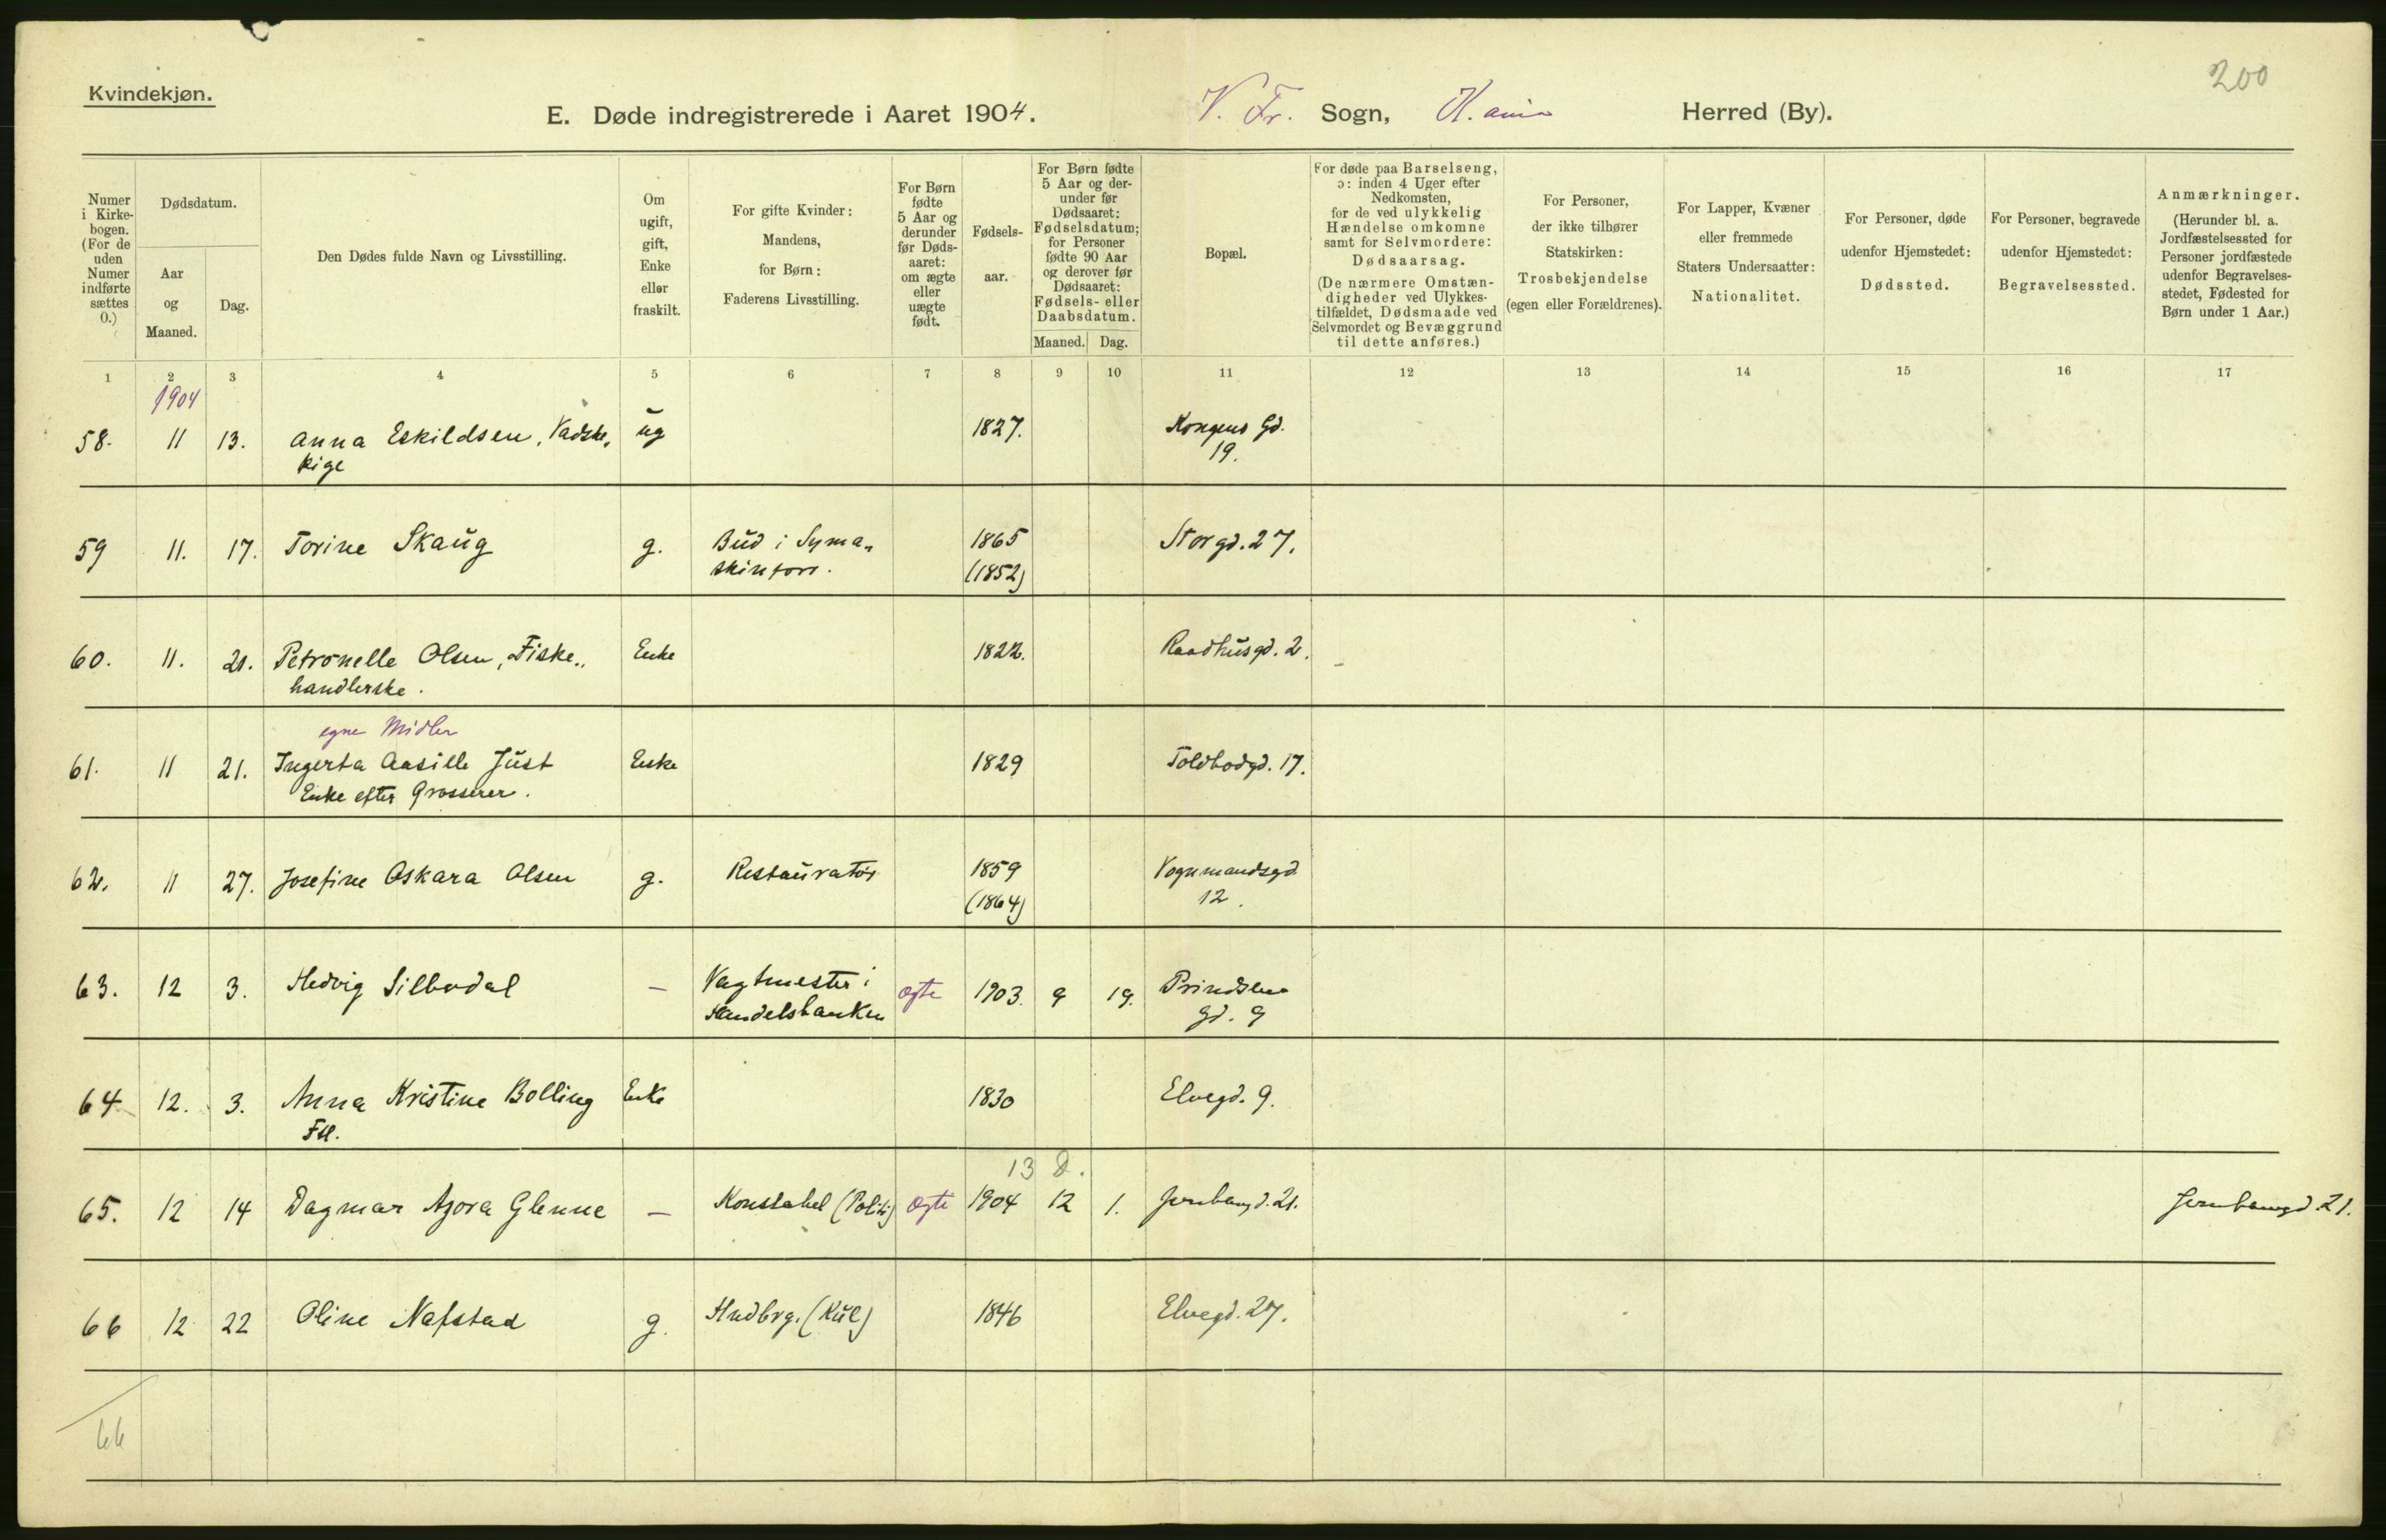 200
Kvindekjøn.
E. Døde indregistrerede i Aaret 1904. V. Fr. Sogn, K.ania Herred (By).
Numer i Kirke-bogen. (For de uden Numer indførte sættes 0.)
Dødsdatum.
Aar og Maaned.
Dag.
Den Dødes fulde Navn og Livsstilling.
Om ugift, gift, Enke eller fraskilt.
For gifte Kvinder: Mandens, for Børn: Faderens Livsstilling.
For Børn fødte 5 Aar og derunder før Døds-aaret: om ægte eller uægte født.
Fødsels-aar.
For Børn fødte 5 Aar og der-under før Dødsaaret: Fødselsdatum; for Personer fødte 90 Aar og derover før Dødsaaret: Fødsels- eller Daabsdatum.
Maaned. Dag.
Bopæl.
For døde paa Barselseng, ɔ: inden 4 Uger efter Nedkomsten, for de ved ulykkelig Hændelse omkomne samt for Selvmordere: Dødsaarsag. (De nærmere Omstæn-digheder ved Ulykkes-tilfældet, Dødsmaade ved Selvmordet og Bevæggrund til dette anføres.)
For Personer, der ikke tilhører Statskirken: Trosbekjendelse (egen eller Forældrenes).
For Lapper, Kvæner eller fremmede Staters Undersaatter: Nationalitet.
For Personer, døde udenfor Hjemstedet: Dødssted.
For Personer, begravede udenfor Hjemstedet: Begravelsessted.
Anmærkninger. (Herunder bl. a. Jordfæstelsessted for Personer jordfæstede udenfor Begravelses-stedet, Fødested for Børn under 1 Aar.)
1 2 3 4 5 6 7 8 9 10 11 12 13 14 15 16 17
1904
58. 11 13. Anna Eskildsen, Vadske- ug 1827. Kongens Gd.
pige 19.
59 11. 17. Torine Skaug g. Bud i Syma- 1865 Storgd. 27.
skinforr. (1852)
60. 11. 21. Petronelle Olsen, Fiske- Enke 1822. Raadhusgd. 2.
handlerske.
egne Midler
61. 11 21. Ingerta Aasille Just Enke 1829 Toldbodgd. 17.
Enke efter Grosserer.
62. 11 27. Josefine Oskara Olsen g. Restauratør 1859 Vognmandsgd.
(1864) 12.
63. 12 3. Hedvig Silbodal — Vagtmester i ægte 1903. 9 19. Prindsens
Handelsbanken gd. 9
64 12. 3. Anna Kristine Bolling Enke 1830 Elvegd. 9.
Ftl.
13 D.
65. 12 14 Dagmar Azora Glenne — Konstabel (Politi) ægte 1904 12 1. Jernbangd. 21. Jernbanegd. 21.
66 12 22 Oline Nafstad g. Hndbrg. (Kul) 1846 Elvegd. 27.
66